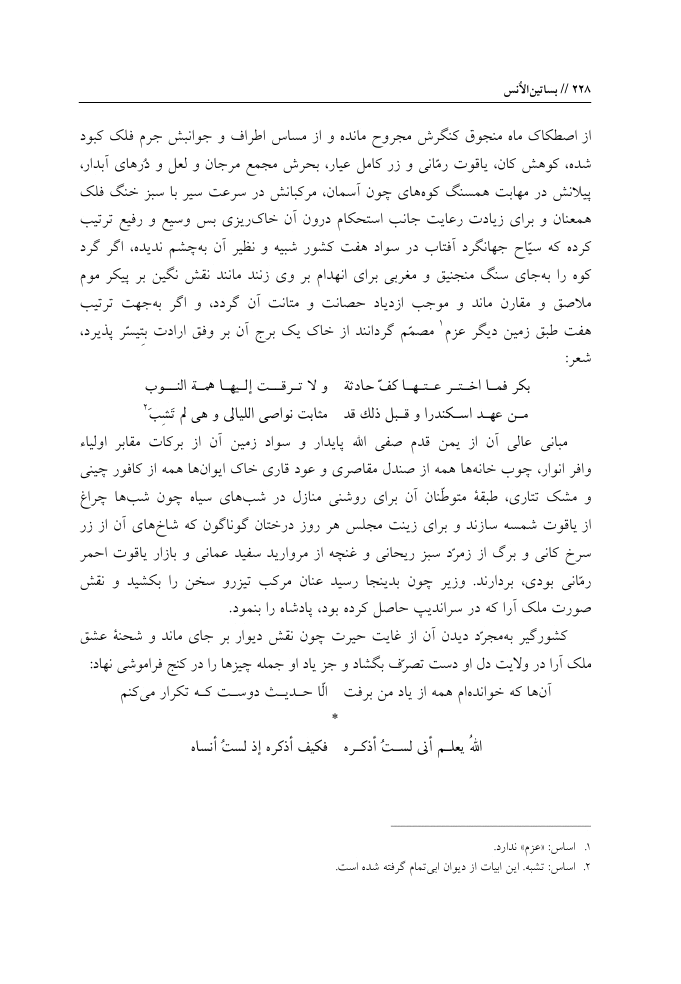 ۲۲۸ // بساتین‌الاُنس
از اصطکاک ماه منجوق کنگرش مجروح مانده و از مساس اطراف و جوانبش جرم فلک کبود
شده، کوهش کان، یاقوت رمّانی و زر کامل عیار، بحرش مجمع مرجان و لعل و دُرهای آبدار،
پیلانش در مهابت همسنگ کوه‌های چون آسمان، مرکبانش در سرعت سیر با سبز خنگ فلک
همعنان و برای زیادت رعایت جانب استحکام درون آن خاک‌ریزی بس وسیع و رفیع ترتیب
کرده که سیّاح جهانگرد آفتاب در سواد هفت کشور شبیه و نظیر آن به‌چشم ندیده، اگر گرد
کوه را به‌جای سنگ منجنیق و مغربی برای انهدام بر وی زنند مانند نقش نگین بر پیکر موم
ملاصق و مقارن ماند و موجب ازدیاد حصانت و متانت آن گردد، و اگر به‌جهت ترتیب
هفت طبق زمین دیگر عزم۱ مصمّم گردانند از خاک یک برج آن بر وفق ارادت بتِیسّر پذیرد،
شعر:
بکر فمـا اختـر عـتـهـا کفّ حادثة و لا تـرقـت إلـیـهـا همـة النـوب
مـن عهـد اسکندرا و قبـل ذلك قد مثابت نواصی اللیالی و هی لم تَشِبَ۲
مبانی عالی آن از یمن قدم صفی الله پایدار و سواد زمین آن از برکات مقابر اولیاء
وافر انوار، چوب خانه‌ها همه از صندل مقاصری و عود قاری خاک ایوان‌ها همه از کافور چینی
و مشک تتاری، طبقهٔ متوطّنان آن برای روشنی منازل در شب‌های سیاه چون شب‌ها چراغ
از یاقوت شمسه سازند و برای زینت مجلس هر روز درختان گوناگون که شاخ‌های آن از زر
سرخ کانی و برگ از زمرّد سبز ریحانی و غنچه از مروارید سفید عمانی و بازار یاقوت احمر
رمّانی بودی، بردارند. وزیر چون بدینجا رسید عنان مرکب تیزرو سخن را بکشید و نقش
صورت ملک آرا که در سراندیپ حاصل کرده بود، پادشاه را بنمود.
کشورگیر به‌مجرّد دیدن آن از غایت حیرت چون نقش دیوار بر جای ماند و شحنهٔ عشق
ملک آرا در ولایت دل او دست تصرّف بگشاد و جز یاد او جمله چیزها را در کنج فراموشی نهاد:
آن‌ها که خوانده‌ام همه از یاد من برفت الّا حـدیـث دوسـت کـه تکرار می‌کنم
*
اللهُ یعلـم أنی لسـتُ أذکـره فکیف أذکره إذ لستُ أنساه
۱. اساس: «عزم» ندارد.
۲. اساس: تشبه. این ابیات از دیوان ابی‌تمام گرفته شده است.